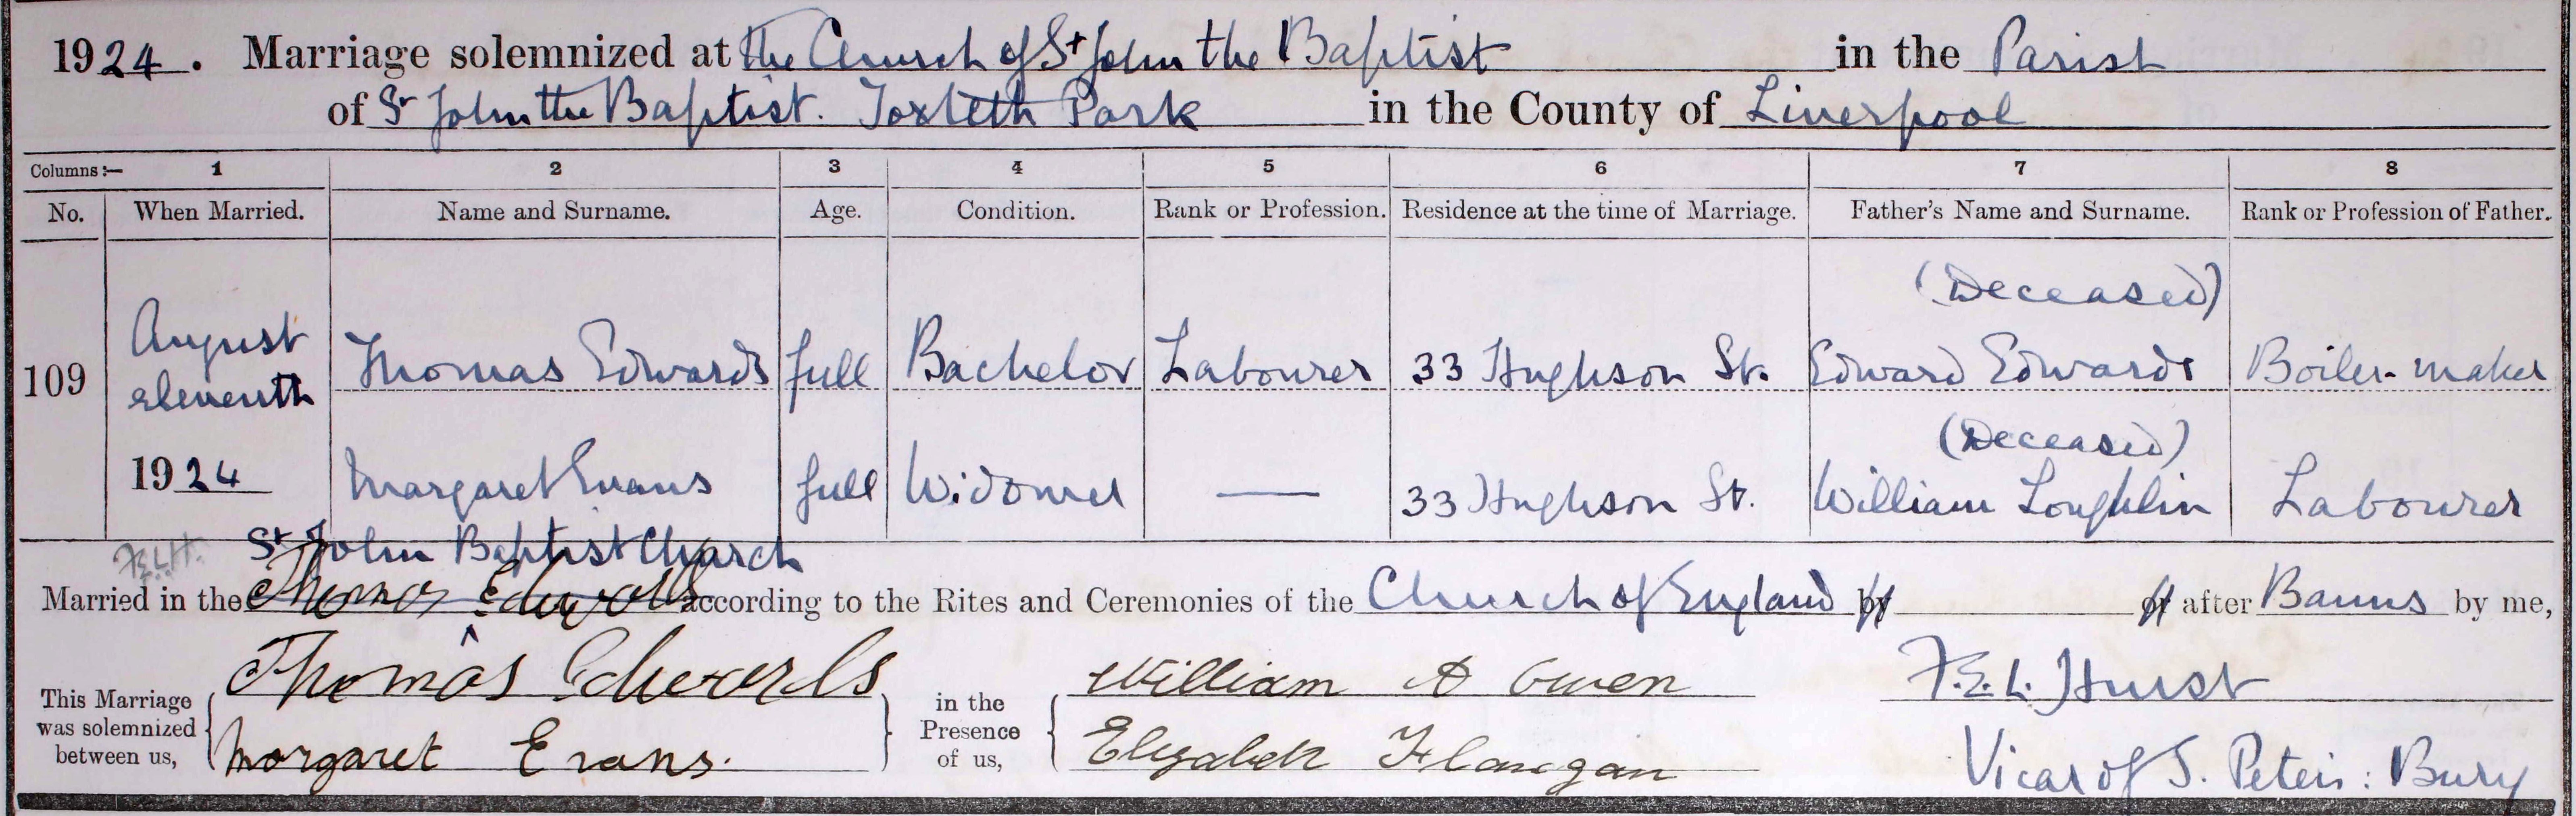 1924. Marriage solemnized at the Church of St John the Baptist in the Parish
of St John the Baptist. Toxteth Park in the County of Liverpool
Columns:— 1 2 3 4 5 6 7 8
No. When Married. Name and Surname. Age. Condition. Rank or Profession. Residence at the time of Marriage. Father's Name and Surname. Rank or Profession of Father.
(Deceased)
109 August eleventh Thomas Edwards full Bachelor Labourer 33 Hughson St. Edward Edwards Boiler-maker
(Deceased)
1924 Margaret Evans full Widowed — 33 Hughson St. William Loughlin Labourer
F.E.L.H. St John Baptist Church
Married in the Thomas Edwards according to the Rites and Ceremonies of the Church of England by or after Banns by me,
This Marriage was solemnized between us, Thomas Edwards in the Presence of us, William A Owen F.E.L. Hurst
Margaret Evans. Elizabeth Flanagan Vicar of S. Peters: Bury